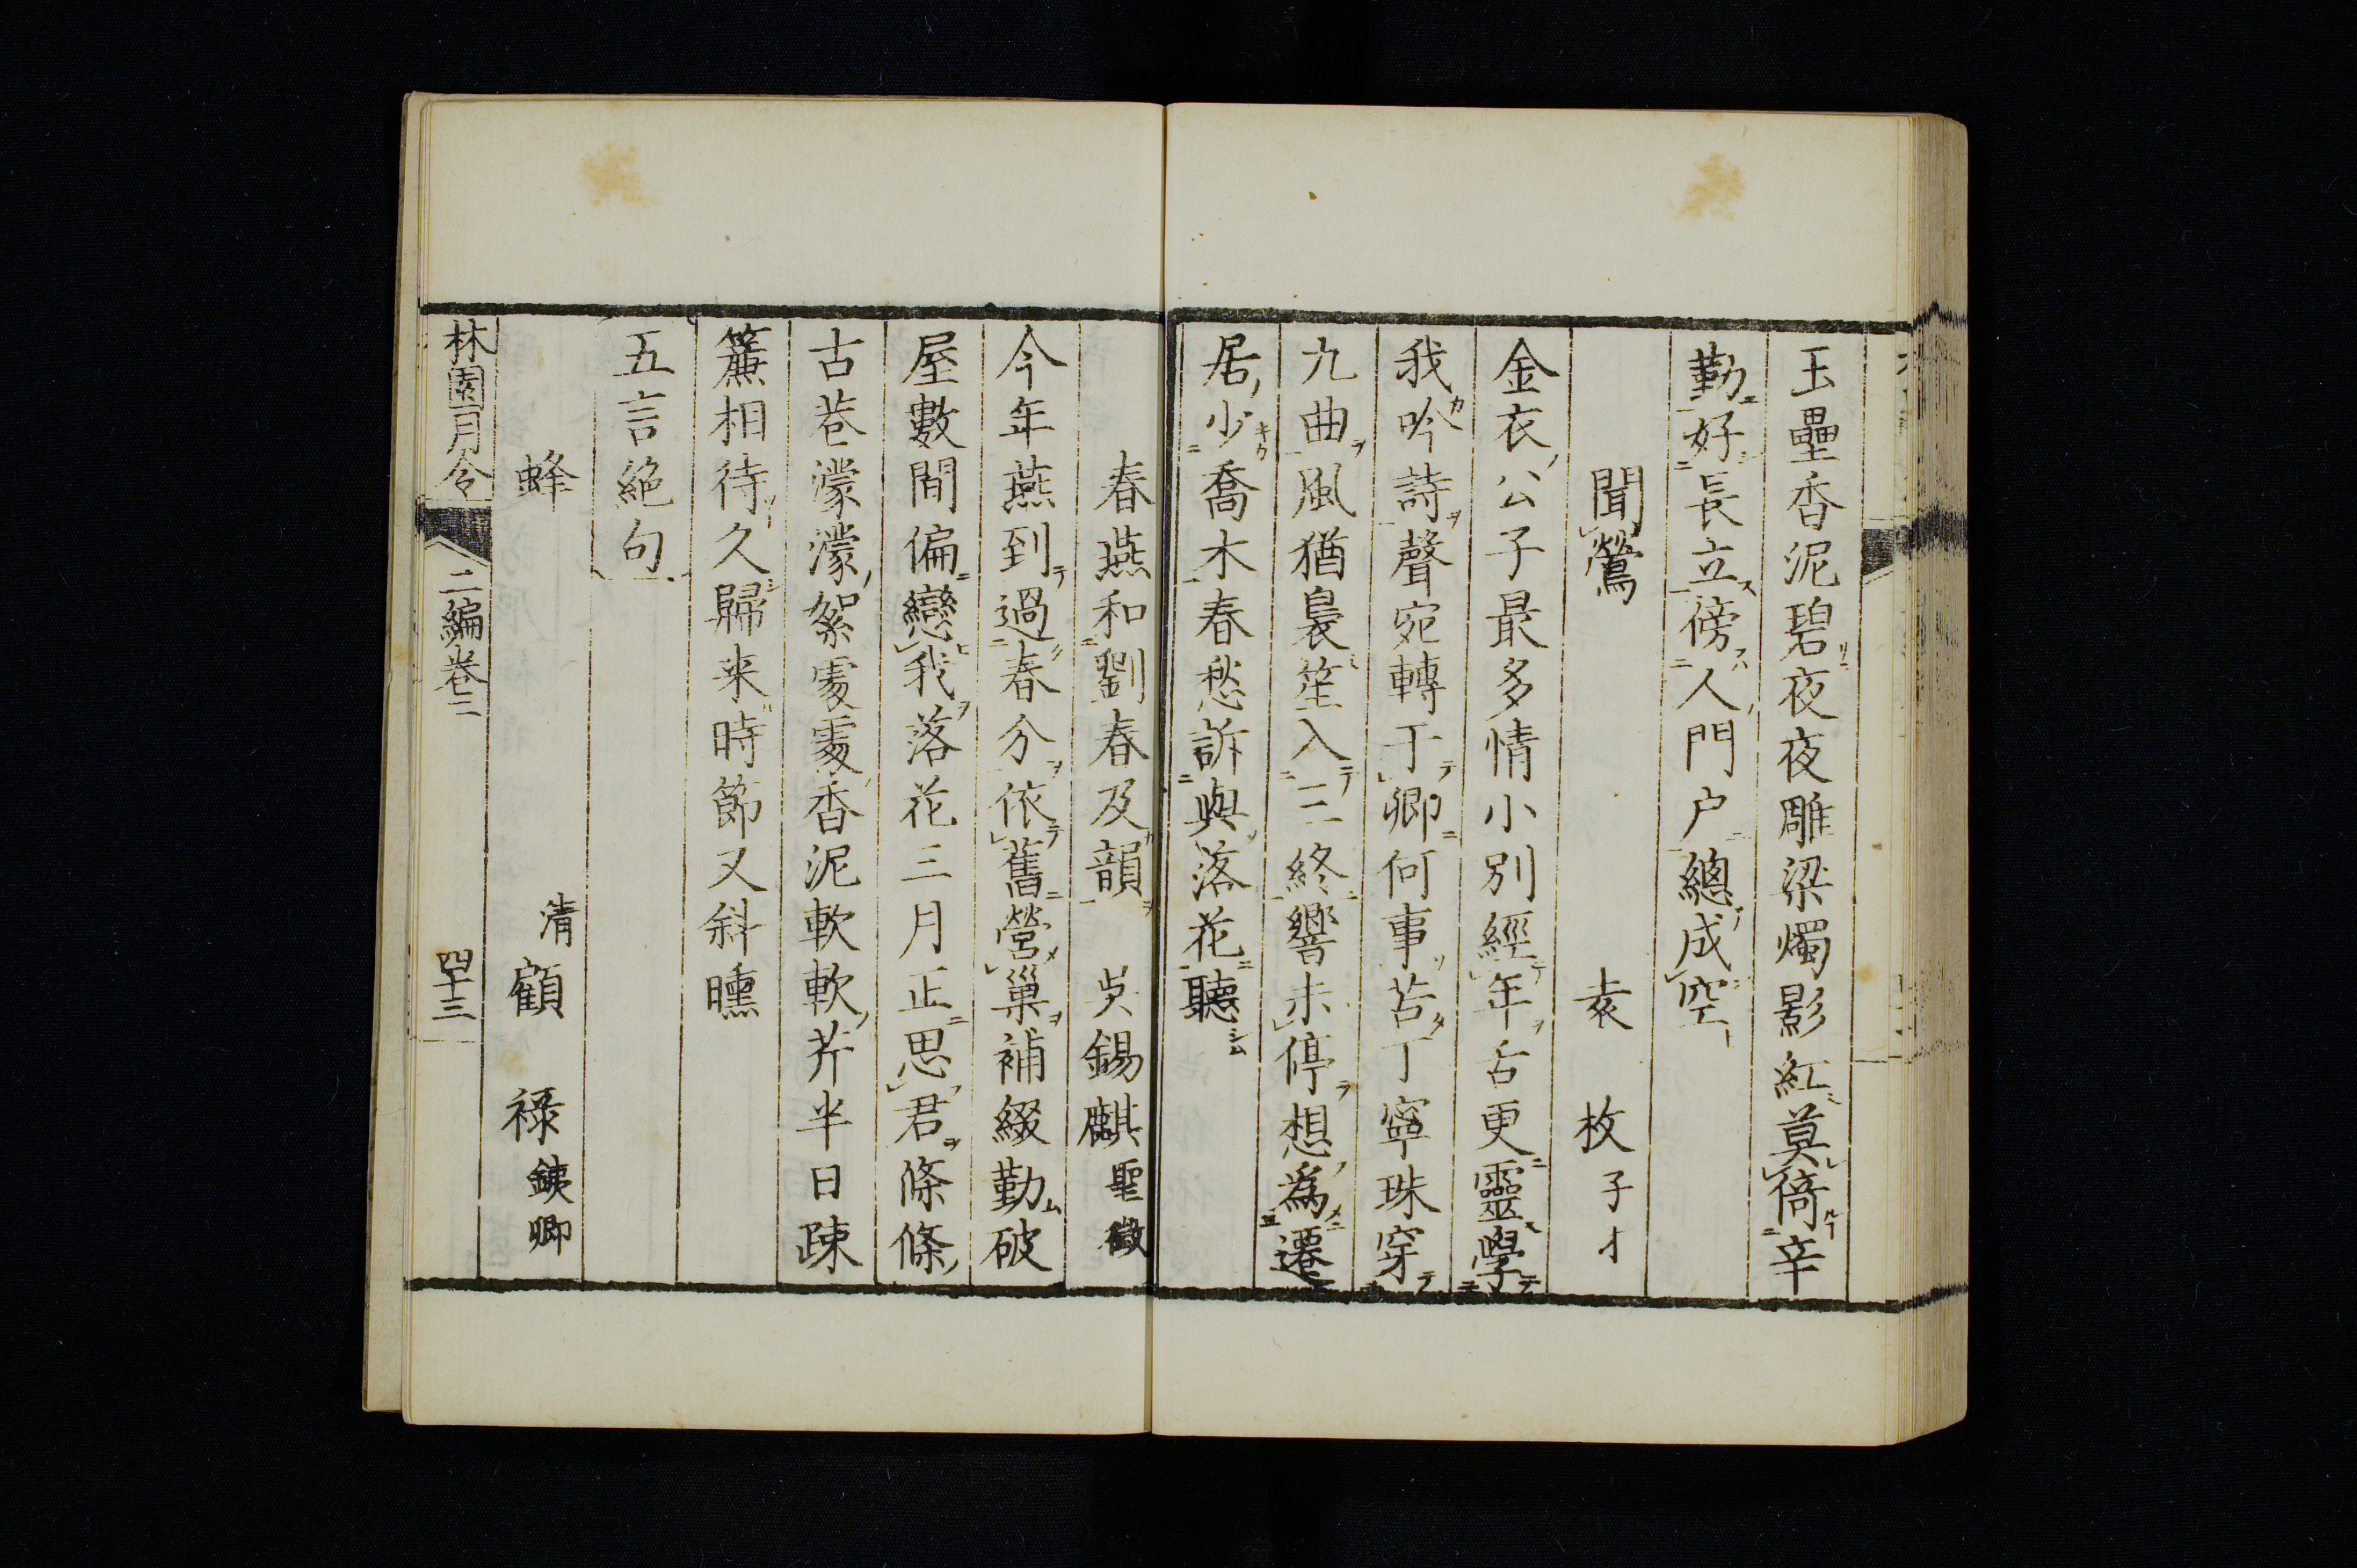 玉壘香泥碧夜夜雕梁燭影紅莫倚辛
勤好長立傍人門户總成空
聞鶯　袁枚子才
金衣公子最多情小別經年舌更靈學
我吟詩聲宛轉于卿何事苦丁寧珠穿
九曲風猶裊笙入三終響未停想為遷
居少喬木春愁訴與落花聽
春燕和劉春及韻　吳錫麒聖徵
今年燕到過春分依舊營巢補綴勤破
屋數間偏戀我落花三月正思君條條
古巷濛濛絮處處香泥軟軟芹半日疎
簾相待久歸来時節又斜曛
五言絕句
蜂　清顧祿銕卿
林園月令　二編卷三　四十三